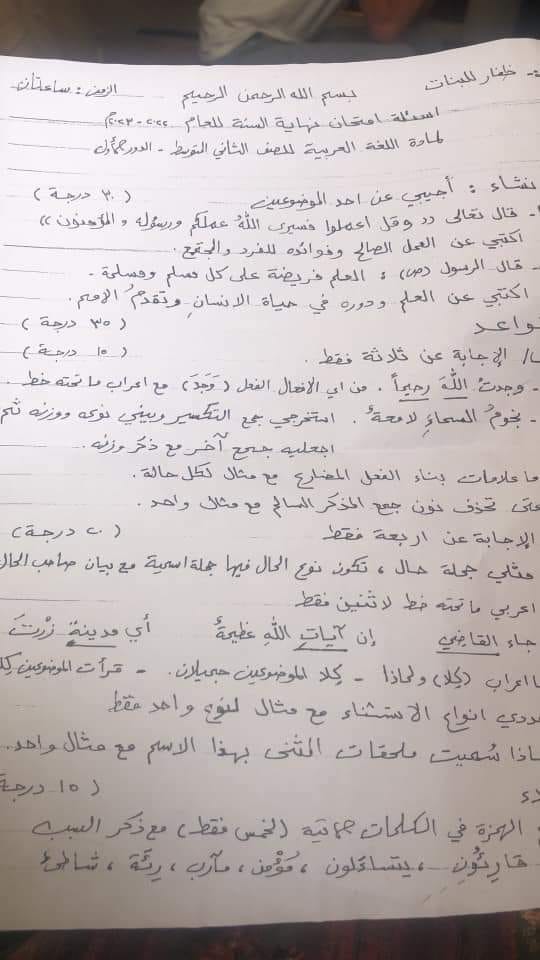 ظفار للبنات بسم الله الرحمن الرحيم الزمن : ساعتان
اسئلة امتحان نهاية السنة للعام ٢٠٢٢ - ٢٠٢٣م
لمادة اللغة العربية للصف الثاني المتوسط - الدور الأول
نشاء : أجيبي عن احد الموضوعين ( ٣٠ درجة )
- قال تعالى (( وقل اعملوا فسيرى اللهُ عملكم ورسوله والمؤمنون ))
اكتبي عن العمل الصالح وفوائده للفرد والمجتمع .
- قال الرسول (ص) : العلم فريضة على كل مسلم ومسلمة -
اكتبي عن العلم ودوره في حياة الانسانِ وتقدمُ الامم .
واعد ( ٣٥ درجة )
/ الإجابة عن ثلاثة فقط . ( ١٥ درجة )
- وجدتُ اللهَ رحيماً . من اي الافعال الفعل ( وَجَدَ ) مع اعراب ما تحته خط .
- نجومُ السماءِ لامعةٌ . استخرجي جمع التكسير وبيني نوعه ووزنه ثم
اجعليه جمع آخر مع ذكر وزنه .
ما علامات بناء الفعل المضارع مع مثال لكل حالة .
متى تحذف نون جمع المذكر السالم مع مثال واحد .
الإجابة عن اربعة فقط ( ٢٠ درجة )
مثلي جملة حال ، تكون نوع الحال فيها جملة اسمية مع بيان صاحب الحال
اعربي ما تحته خط لاثنين فقط
جاء القاضي إن آياتِ اللهِ عظيمةٌ أي مدينةٍ زرْتَ
ما اعراب (كِلا) ولماذا - كِلا الموضوعين جميلان . - قرأت الموضوعين
عددي انواع الاستثناء مع مثال لنوع واحد فقط
ماذا سُميت ملحقات المثنى بهذا الاسم مع مثال واحد .
لاء ( ١٥ درجة
الهمزة في الكلمات الآتية ( لخمس فقط ) مع ذكر السبب
قارئون ، يتساءلون ، مُؤْمن ، مآرب ، رِئَة ، شاطئ